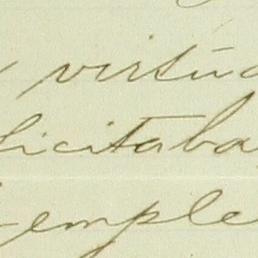 virtud
licitaba
emple